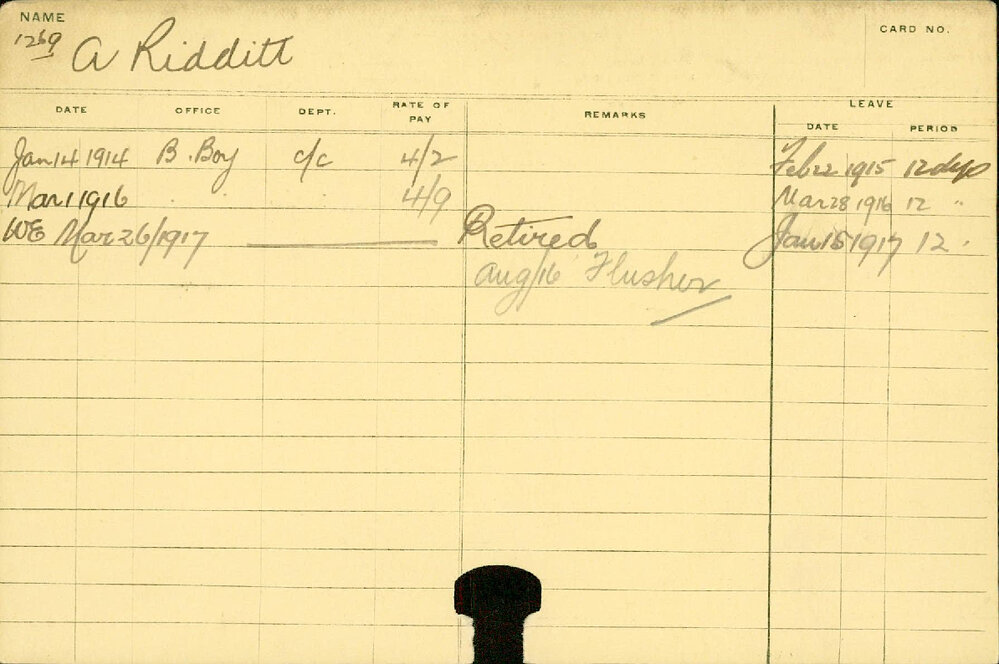 NAME
CARD NO.
1269 A Ridditt
DATE OFFICE DEPT. RATE OF PAY REMARKS LEAVE
DATE PERIOD
Jan 14 1914 B. Boy c/c 4/2 Feb 22 1915 12 days
Mar 1 1916 . . 4/9 Mar 28 1916 12 "
WE Mar 26/1917 Retired Jan 15 1917 12 "
Aug/16 Flusher